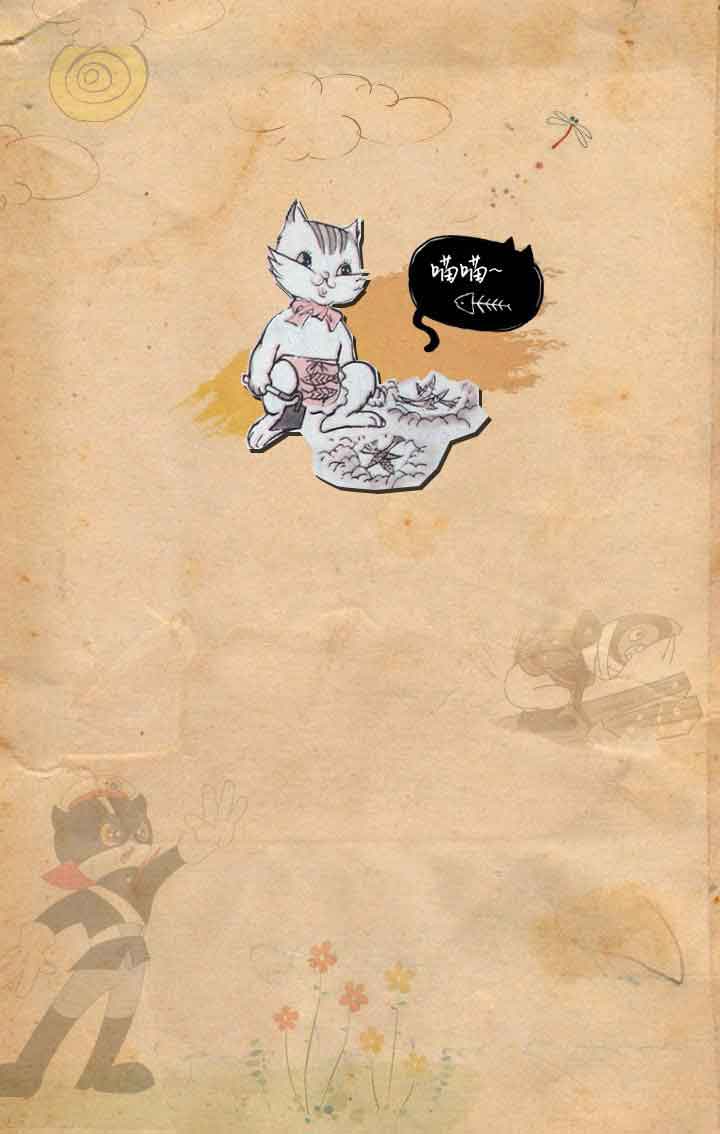 喵喵~